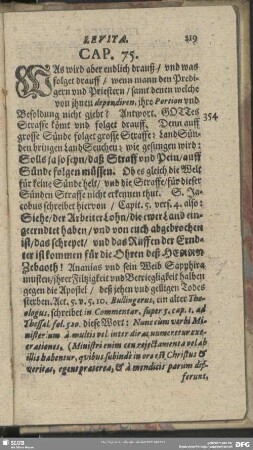 LEVITA.
319
CAP. 75.
WAs wird aber endlich drauß / und was
folget drauff / wenn mann den Predi-
gern und Priestern / samt denen welche
von ihnen dependiren, ihre Portion und
Besoldung nicht giebt? Antwort. GOTTes
Straffe kömt und folget drauff. Denn auff
354
grosse Sünde folget grosse Straffe: LandSün-
den bringen LandSeuchen: wie gesungen wird:
Solls ja so seyn / daß Straff und Pein / auff
Sünde folgen müssen. Ob es gleich die Welt
für keine Sünde helt / und die Straffe / für dieser
Sünden Straffe nicht erkennen thut. S. Ja-
cobus schreibet hiervon / Capit. 5. vers. 4. also:
Siehe / der Arbeiter Lohn / die ewer Land ein-
geerndtet haben / und von euch abgebrochen
ist / das schreyet / und das Ruffen der Ernd-
ter ist kommen für die Ohren deß HERRN
Zebaoth! Ananias und sein Weib Sapphira
musten / ihrer Filtzigkeit und Betriegligkeit halben
gegen die Apostel / deß jehen und gelligen Todes
sterben. Act. 5. v. 5. 10. Bullingerus, ein alter Theo-
logus, schreibet in Commentar. super 5. cap. 1. ad
Thessal. fol. 520. diese Wort: Nunc cum verbi Mi-
nisterium à multis vel inter diras numeretur exe-
crationes. (Ministri enim ceu rejectamenta vel ab
illis habentur, qvibus subindè in ore est Christus &
veritas, egent praeterea, & à mendicis parum dif-
ferunt,
SLUB